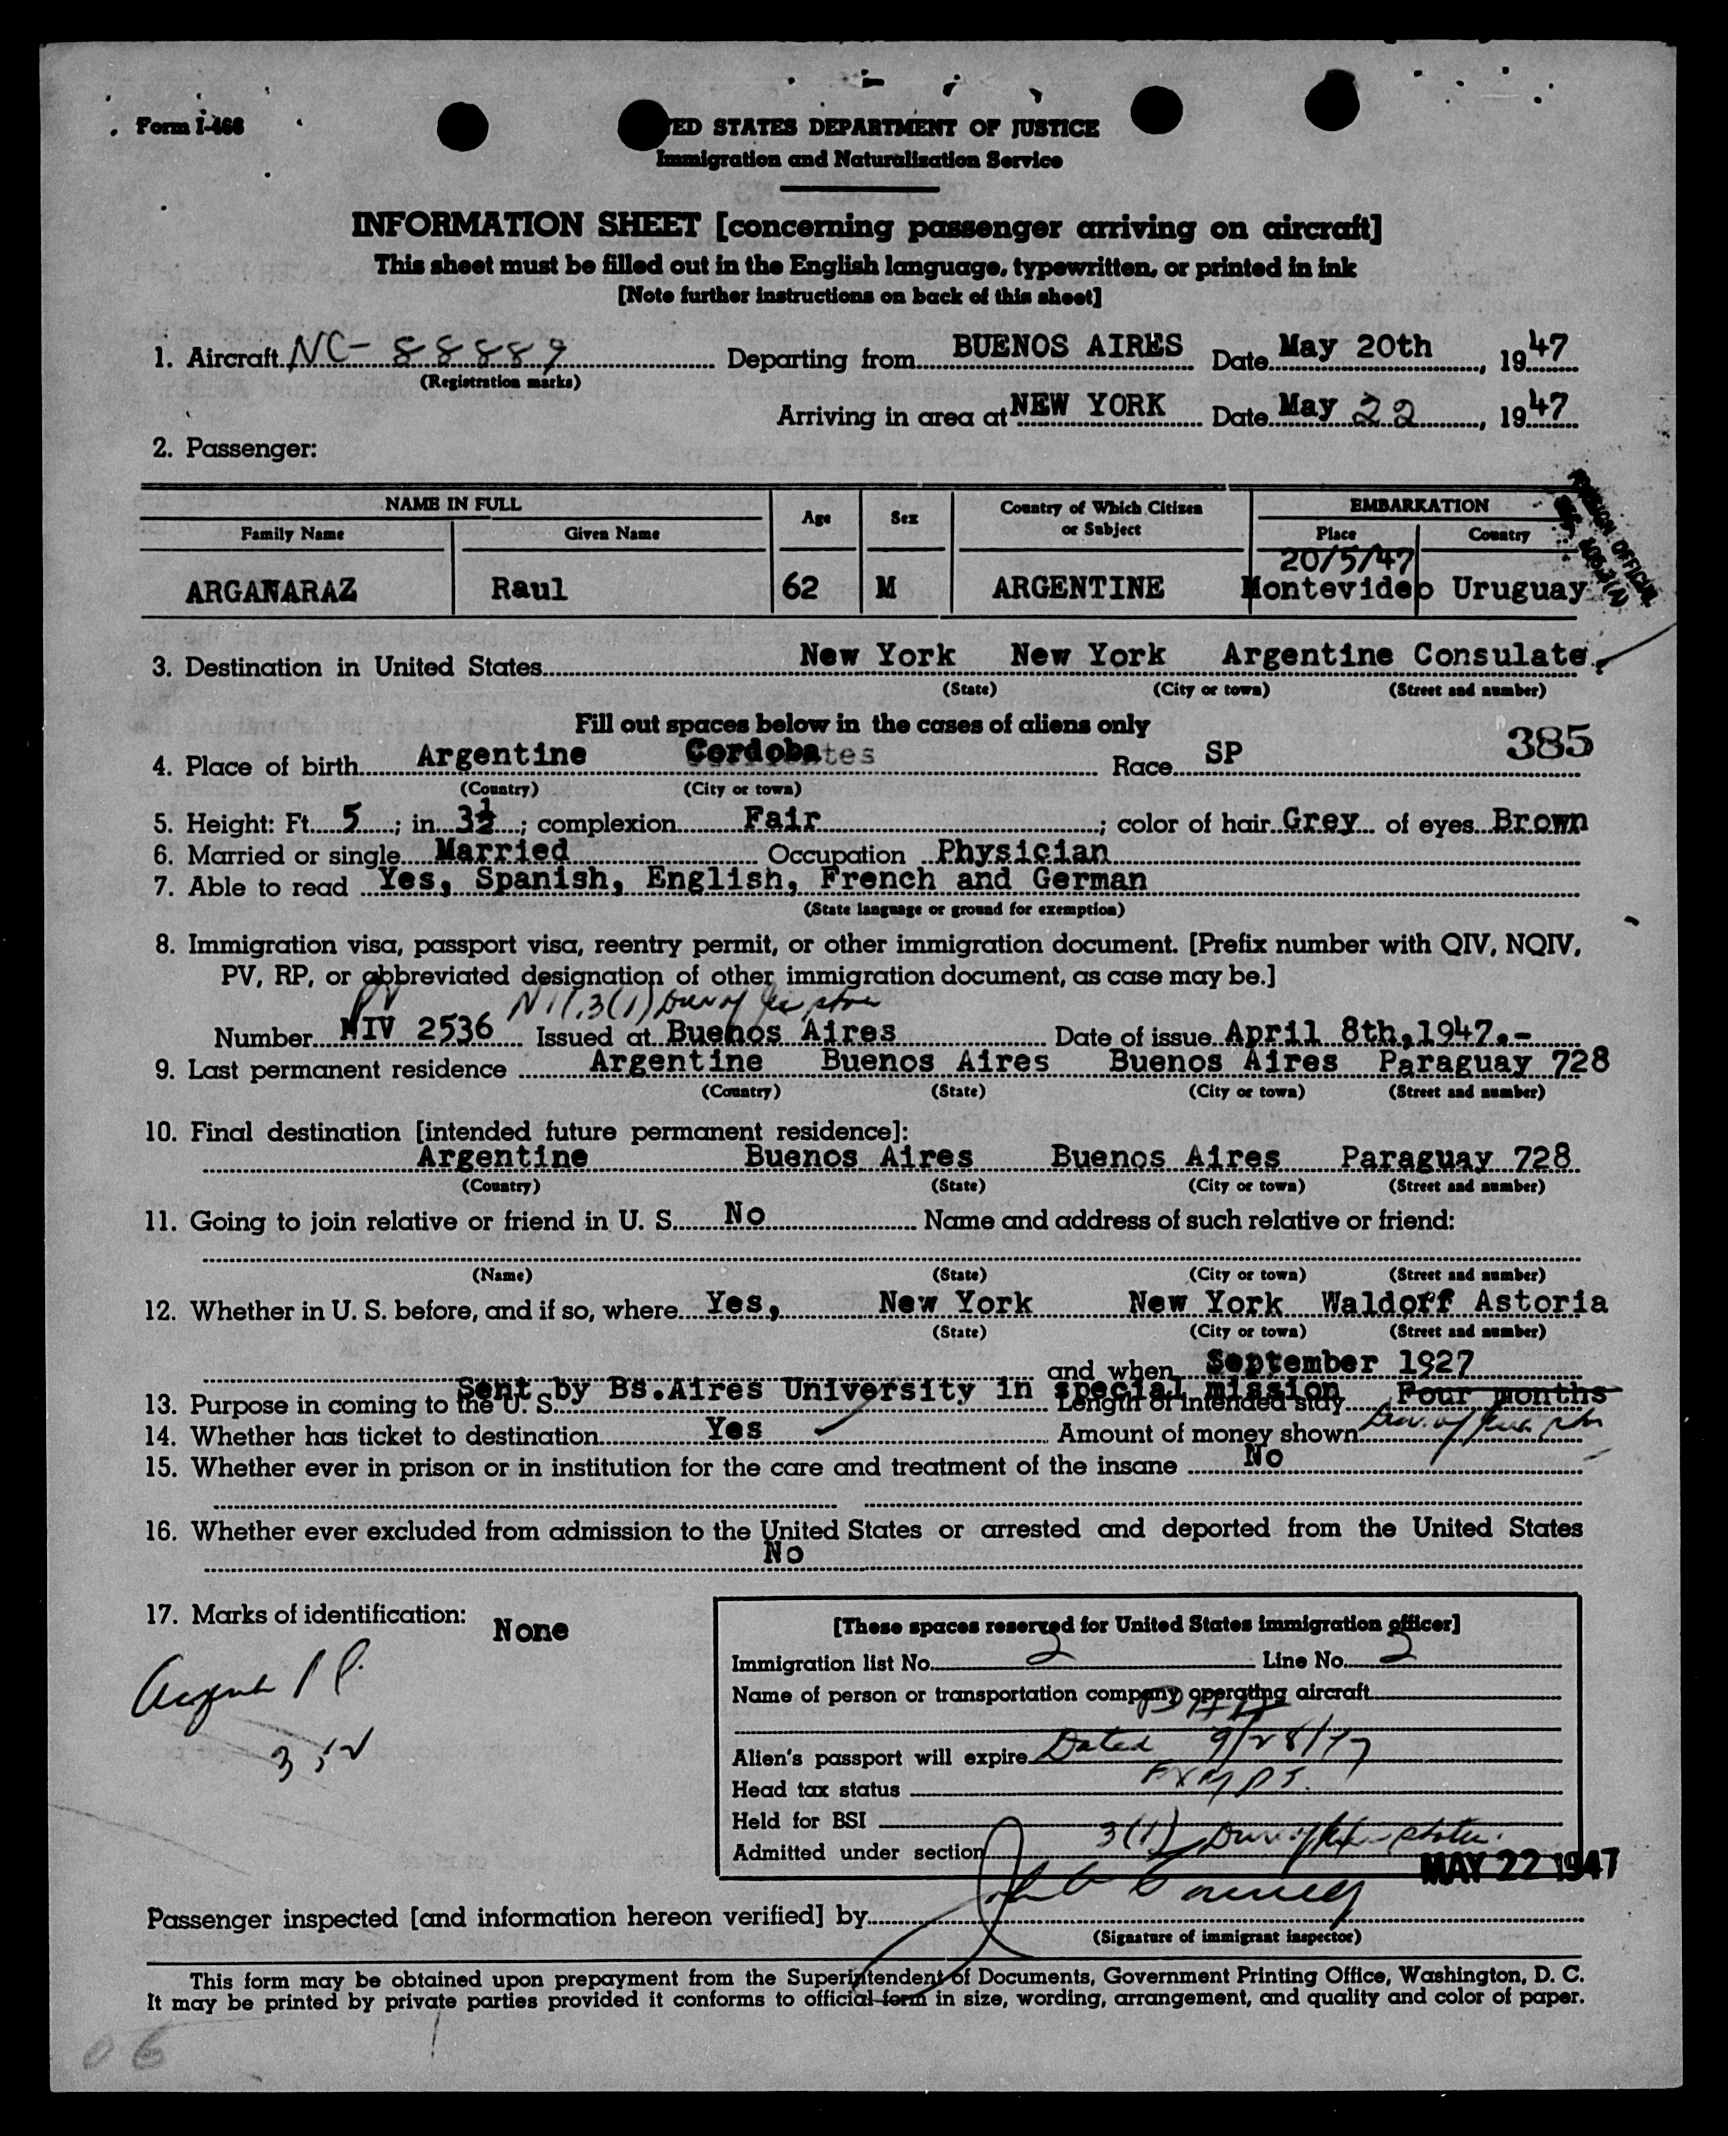 Form I-466
ED STATES DEPARTMENT OF JUSTICE
Immigration and Naturalization Service
INFORMATION SHEET [concerning passenger arriving on aircraft]
This sheet must be filled out in the English language, typewritten, or printed in ink
[Note further instructions on back of this sheet]
1. Aircraft NC-88889 Departing from BUENOS AIRES Date May 20th, 1947
(Registration marks)
Arriving in area at NEW YORK Date May 22, 1947
2. Passenger:
NAME IN FULL Age Sex Country of Which Citizen or Subject EMBARKATION
Family Name Given Name Place Country
20/5/47
ARGANARAZ Raul 62 M ARGENTINE Montevideo Uruguay
FOREIGN OFFICIAL
3. Destination in United States New York New York Argentine Consulate.
(State) (City or town) (Street and number)
Fill out spaces below in the cases of aliens only
385
4. Place of birth Argentine Cordoba Race SP
(Country) (City or town)
5. Height: Ft. 5; in. 3½; complexion Fair; color of hair Grey of eyes Brown
6. Married or single Married Occupation Physician
7. Able to read Yes, Spanish, English, French and German
(State language or ground for exemption)
8. Immigration visa, passport visa, reentry permit, or other immigration document. [Prefix number with QIV, NQIV,
PV, RP, or abbreviated designation of other immigration document, as case may be.]
PV 3(1)
Number NIV 2536 Issued at Buenos Aires Date of issue April 8th,1947.-
9. Last permanent residence Argentine Buenos Aires Buenos Aires Paraguay 728
(Country) (State) (City or town) (Street and number)
10. Final destination [intended future permanent residence]:
Argentine Buenos Aires Buenos Aires Paraguay 728
(Country) (State) (City or town) (Street and number)
11. Going to join relative or friend in U. S. No Name and address of such relative or friend:
(Name) (State) (City or town) (Street and number)
12. Whether in U. S. before, and if so, where Yes, New York New York Waldorf Astoria
(State) (City or town) (Street and number)
and when September 1927
Sent by Bs.Aires University in special mission
13. Purpose in coming to the U. S. Length of intended stay Four months
14. Whether has ticket to destination Yes Amount of money shown
15. Whether ever in prison or in institution for the care and treatment of the insane No
16. Whether ever excluded from admission to the United States or arrested and deported from the United States
No
17. Marks of identification: None
[These spaces reserved for United States immigration officer]
Immigration list No. 2 Line No. 2
Name of person or transportation company operating aircraft
PAA
Alien's passport will expire Dated 9/28/47
Head tax status Exmpt.
Held for BSI
Admitted under section 3(1)
MAY 22 1947
Passenger inspected [and information hereon verified] by
(Signature of immigrant inspector)
This form may be obtained upon prepayment from the Superintendent of Documents, Government Printing Office, Washington, D. C.
It may be printed by private parties provided it conforms to official form in size, wording, arrangement, and quality and color of paper.
06